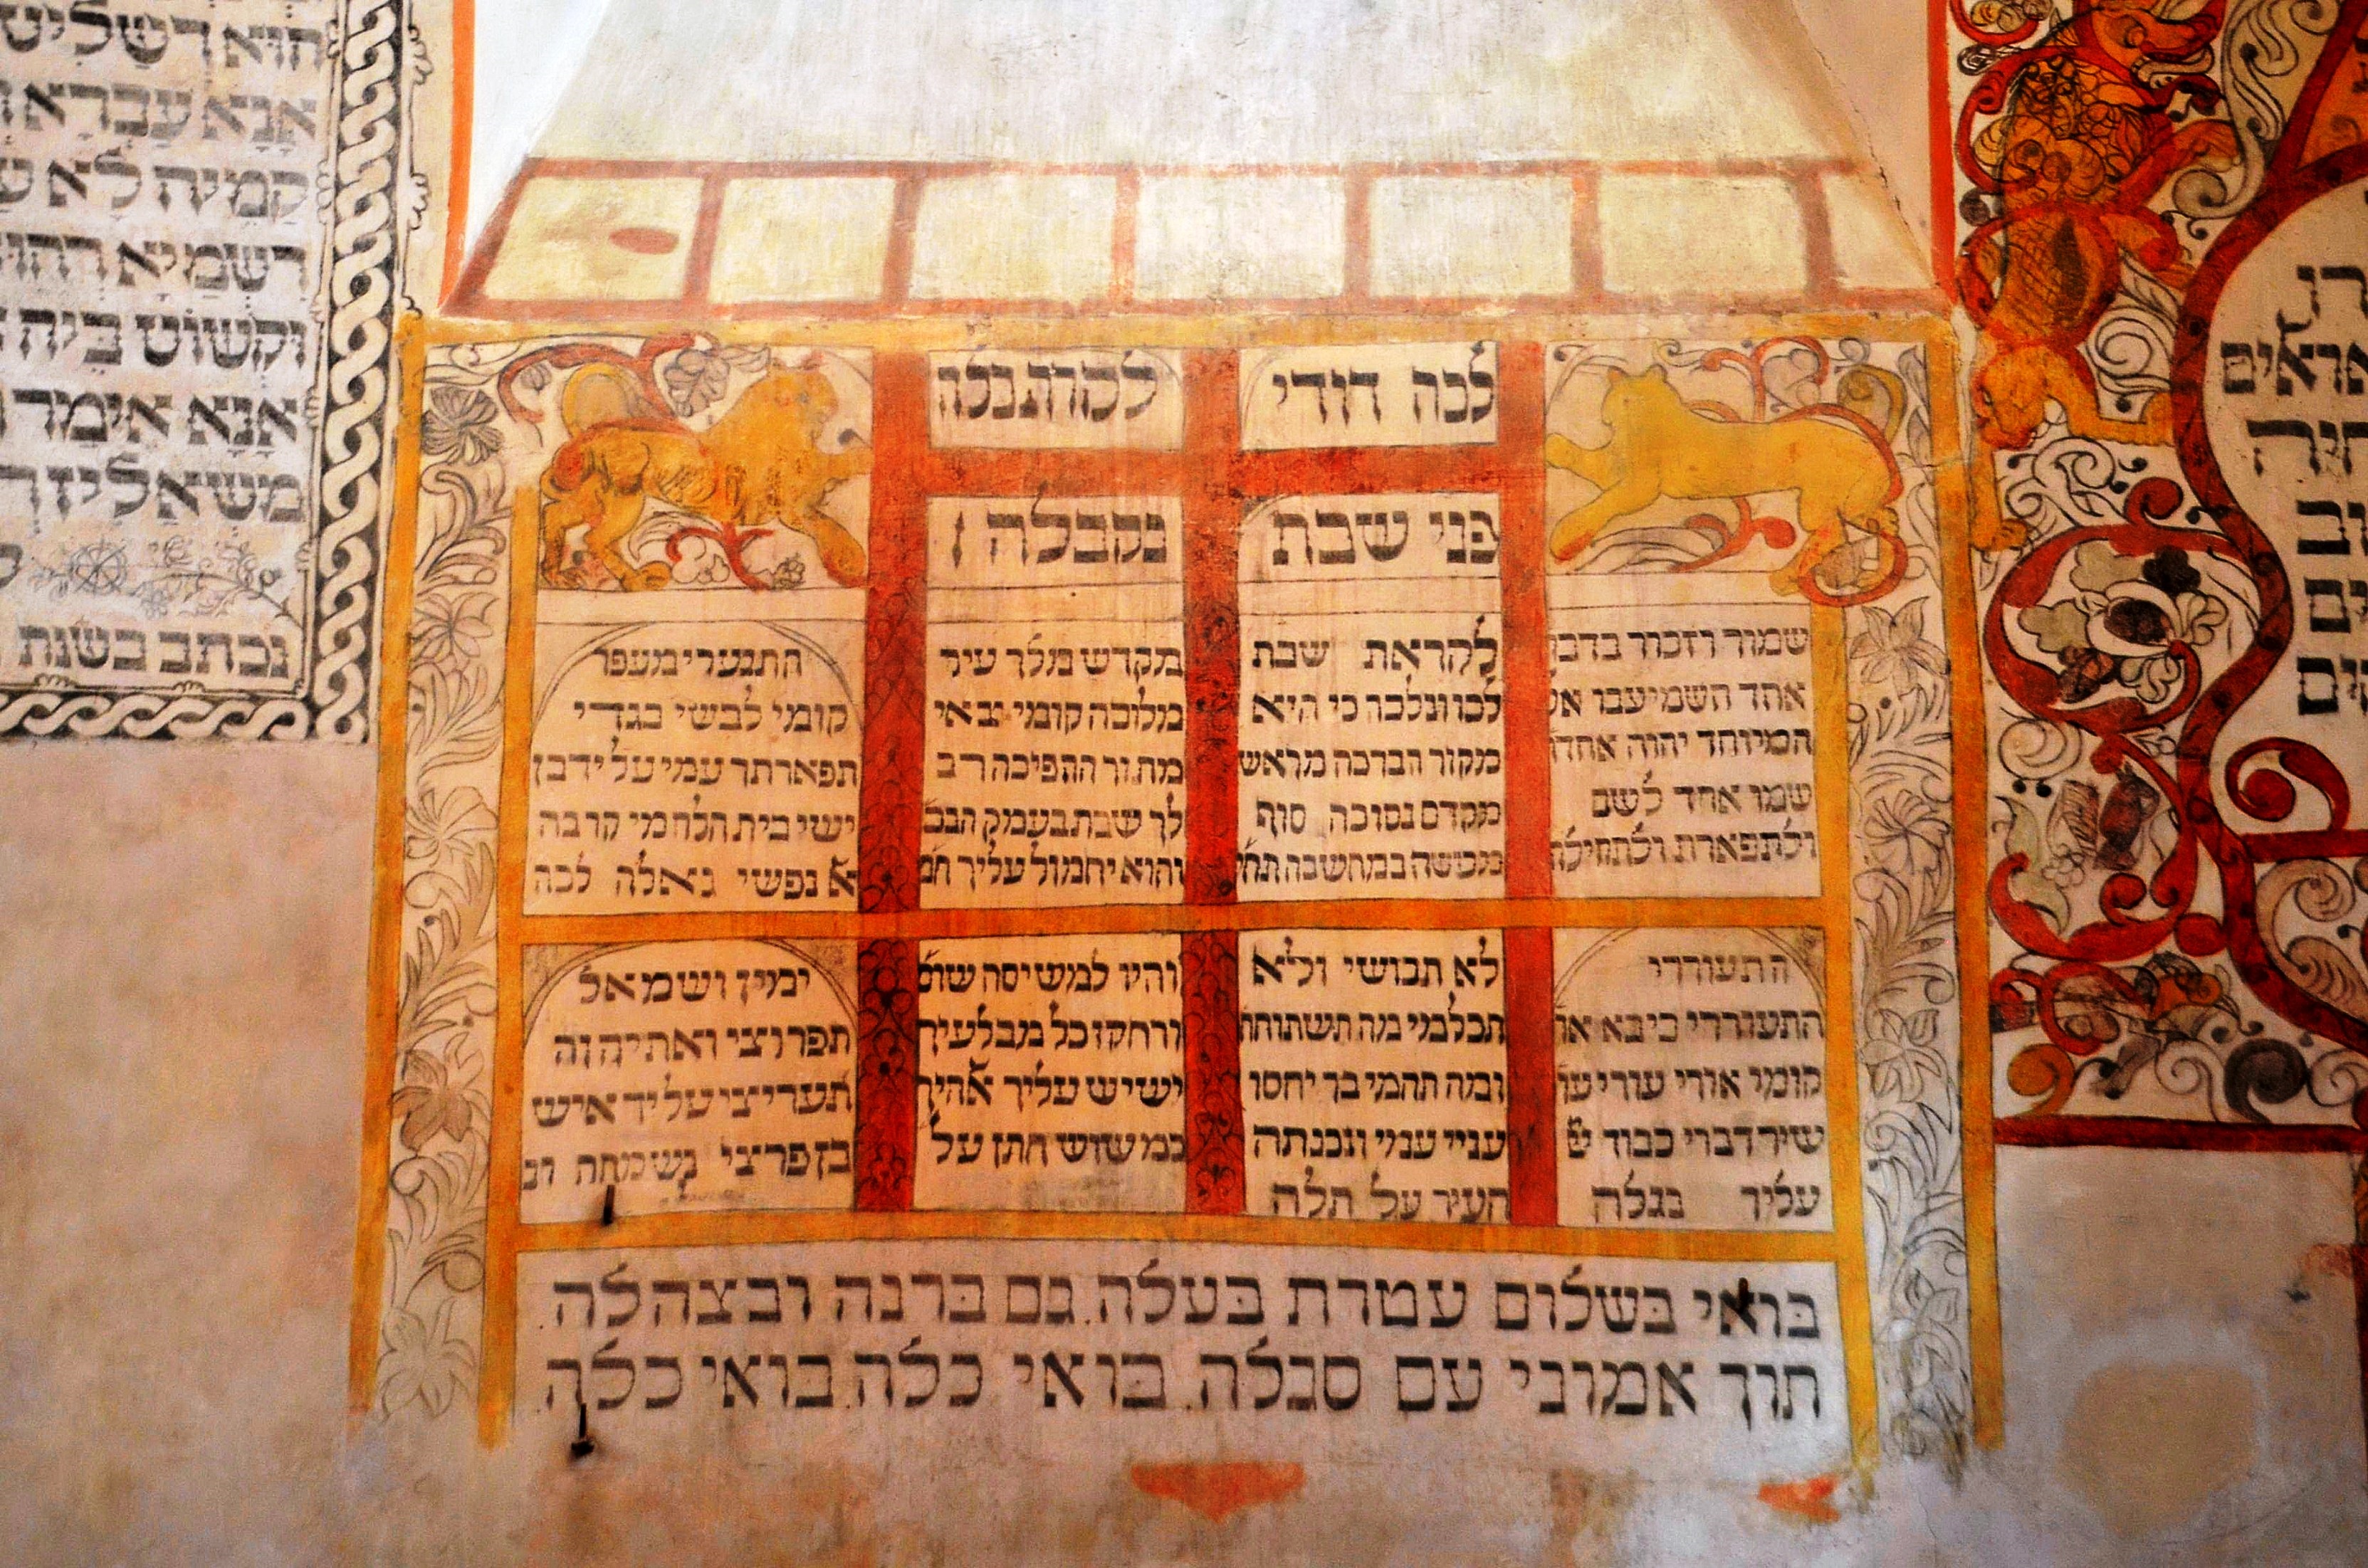 לכה דודי
לקרת כלה
פני שבת
נקבלה
שמור וזכור בדבר
אחד השמיענו אל
המיוחד יהוה אחד ו
שמו אחד לשם
ולתפארת ולתהילה
לקראת שבת
לכו ונלכה כי היא
מקור הברכה מראש
מקדם נסוכה סוף
מעשה במחשבה תחי
מקדש מלך עיר
מלוכה קומי וצאי
מתוך ההפיכה רב
לך שבת בעמק הבכ
והוא יחמול עליך חמ
התנערי מעפר
קומי לבשי בגדי
תפארתך עמי על יד בן
ישי בית הלחמי קרבה
אל נפשי גאלה לכה
התעוררי
התעוררי כי בא או
קומי אורי עורי עו
שיר דברי כבוד
עליך נגלה
לא תבושי ולא
תכלמי מה תשתוחח
ומה תהמי בך יחסו
עניי עמי ונבנתה
העיר על תלה
והיו למשיסה שוס
ורחקו כל מבלעיך
ישיש עליך אלהיך
כמשוש חתן על
ימין ושמאל
תפרוצי ואת יהוה
תעריצי על יד איש
בן פרצי נשמחה ונ
בואי בשלום עטרת בעלה. גם ברנה ובצהלה.
תוך אמוני עם סגלה. בואי כלה. בואי כלה.
אנא עבדא
קמיה לא
וקשוט ביה
אנא אימר
נכתב בשנת